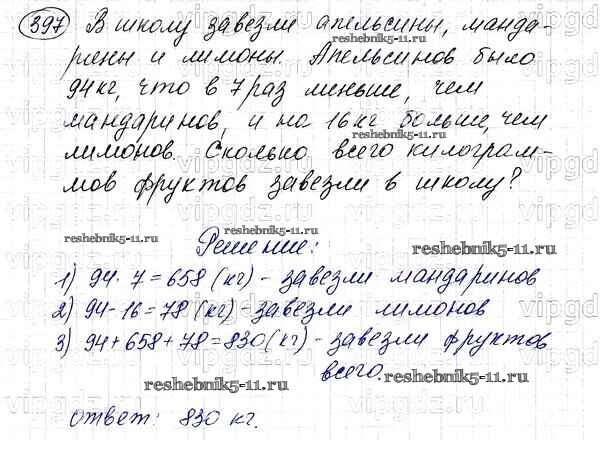 397 В школу завезли апельсины, манда-
reshebnik5-11.ru
рины и лимоны. Апельсинов было
94 кг, что в 7 раз меньше, чем
мандаринов, и на 16 кг больше, чем
reshebnik5-11.ru
лимонов. Сколько всего килограм-
мов фруктов завезли в школу?
reshebnik5-11.ru
Решение:
reshebnik5-11.ru
1) 94 · 7 = 658 (кг) - завезли мандаринов
2) 94 - 16 = 78 (кг) - завезли лимонов
3) 94 + 658 + 78 = 830 (кг) - завезли фруктов
всего.
reshebnik5-11.ru
reshebnik5-11.ru
ответ: 830 кг.